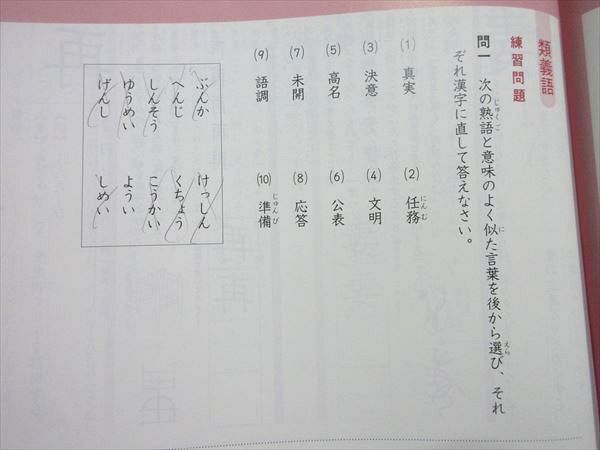 類義語
練習問題
問一 次の熟語と意味のよく似た言葉を後から選び、それ
ぞれ漢字に直して答えなさい。
(1) 真実
(2) 任務
(3) 決意
(4) 文明
(5) 高名
(6) 公表
(7) 未開
(8) 応答
(9) 語調
(10) 準備
ぶんか けっしん
へんじ くちょう
しんそう こうかい
ゆうめい ようい
げんし しめい